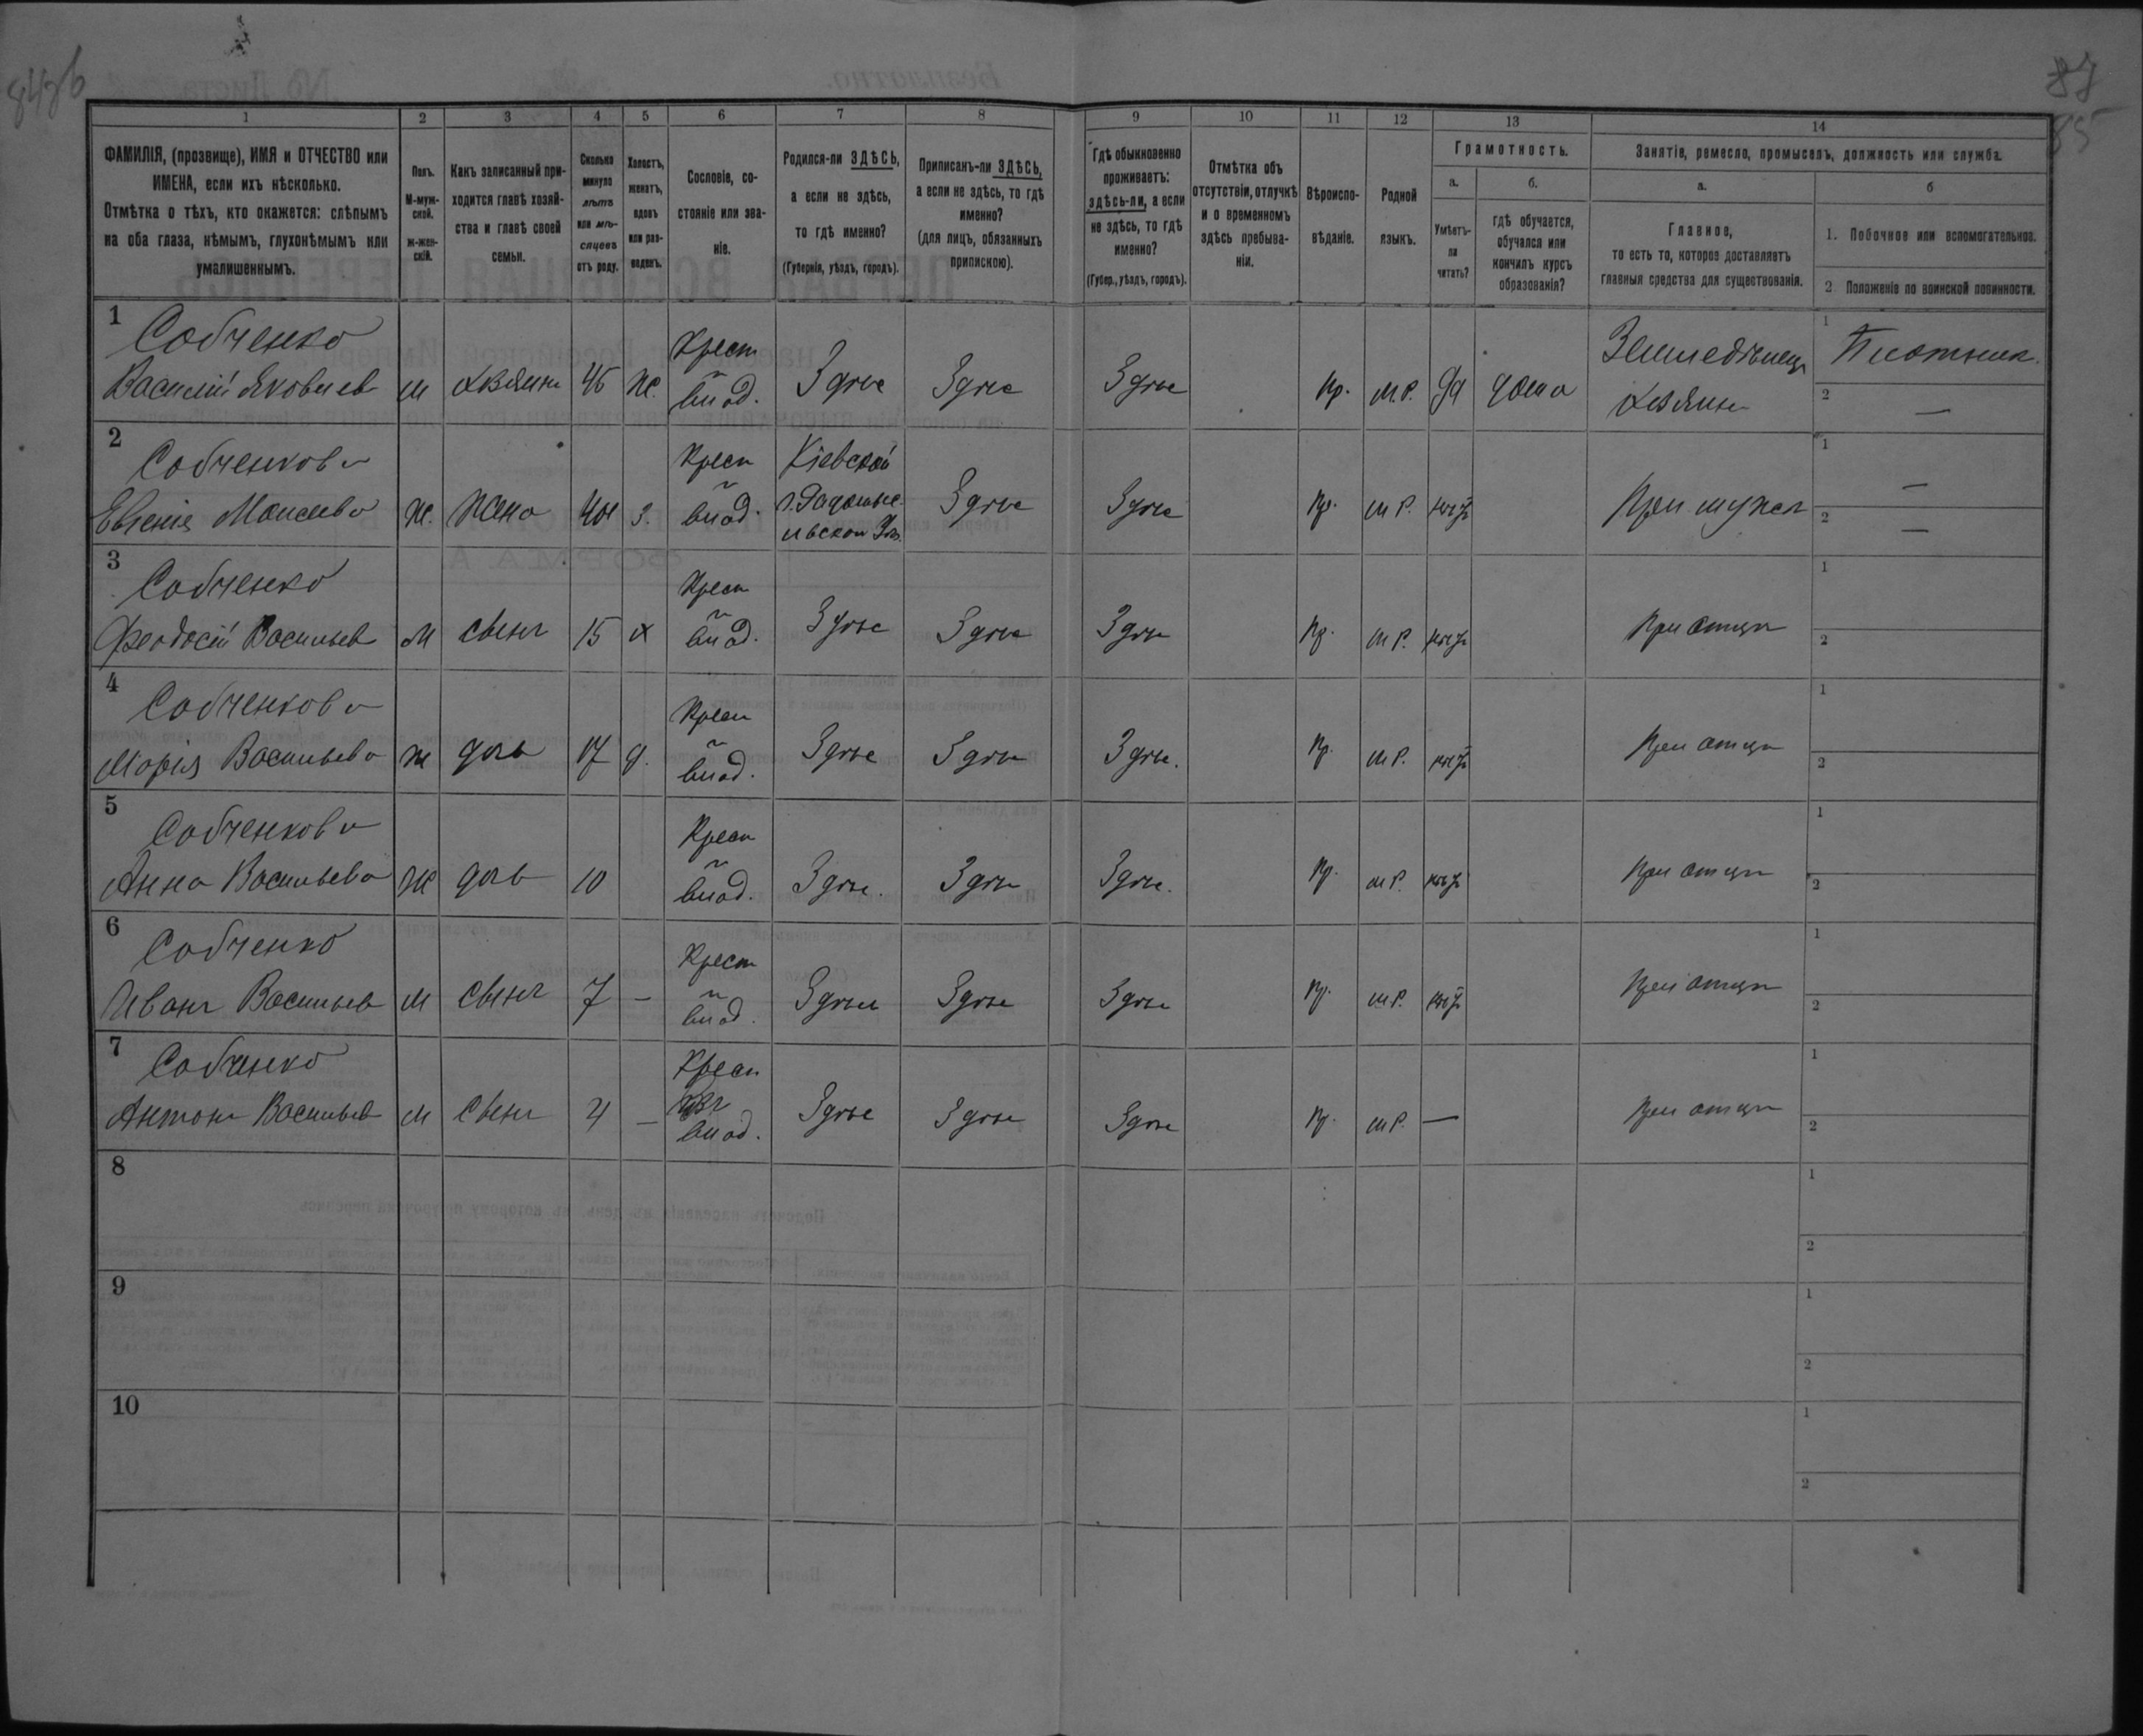 87
85
1 2 3 4 5 6 7 8 9 10 11 12 13 14
ФАМИЛІЯ, (прозвище), ИМЯ и ОТЧЕСТВО или
ИМЕНА, если ихъ нѣсколько.
Отмѣтка о тѣхъ, кто окажется: слѣпымъ
на оба глаза, нѣмымъ, глухонѣмымъ или
умалишеннымъ.
Полъ.
М-муж-
ской.
ж-жен-
скій.
Какъ записанный при-
ходится главѣ хозяй-
ства и главѣ своей
семьи.
Сколько
минуло
лѣтъ
или мѣ-
сяцевъ
отъ роду.
Холостъ,
женатъ,
вдовъ
или раз-
веденъ.
Сословіе, со-
стояніе или зва-
ніе.
Родился-ли ЗДѢСЬ,
а если не здѣсь,
то гдѣ именно?
(Губернія, уѣздъ, городъ).
Приписанъ-ли ЗДѢСЬ,
а если не здѣсь, то гдѣ
именно?
(для лицъ, обязанныхъ
припискою).
Гдѣ обыкновенно
проживаетъ:
здѣсь-ли, а если
не здѣсь, то гдѣ
именно?
(Губер., уѣздъ, городъ).
Отмѣтка объ
отсутствіи, отлучкѣ
и о временномъ
здѣсь пребыва-
ніи.
Вѣроиспо-
вѣданіе.
Родной
языкъ.
Грамотность.
а.
Умѣетъ-
ли
читать?
б.
гдѣ обучается,
обучался или
кончилъ курсъ
образованія?
Занятіе, ремесло, промыселъ, должность или служба.
а.
Главное,
то есть то, которое доставляетъ
главныя средства для существованія.
б
1. Побочное или вспомогательное.
2. Положеніе по воинской повинности.
1 Собченко Крест Земледѣлецъ 1 Плотникъ
Василій Яковлев м хозяинъ 46 ж. влад. Здѣсь Здѣсь Здѣсь Пр. М.Р. да дома хозяинъ 2 —
2 Собченкова Крест Кіевской 1 —
Евгенія Моисеева ж. жена 3. влад. Здѣсь Здѣсь Пр. М.Р. При мужѣ 2 —
3 Собченко Крест 1
Феодосій Васильев м сынъ 15 х влад. Здѣсь Здѣсь Здѣсь Пр. М.Р. При отцѣ 2
4 Собченкова Крест 1
Марія Васильева ж дочь 17 д. влад. Здѣсь Здѣсь Здѣсь. Пр. М.Р. При отцѣ 2
5 Собченкова Крест 1
Анна Васильева ж дочь 10 влад. Здѣсь. Здѣсь Здѣсь. Пр. М.Р. При отцѣ 2
6 Собченко Крест 1
Иванъ Васильев м сынъ 7 — влад. Здѣсь Здѣсь Здѣсь Пр. М.Р. При отцѣ 2
7 Собченко Крест 1
Антонъ Васильев м сынъ 4 — влад. Здѣсь Здѣсь Здѣсь Пр. М.Р. — При отцѣ 2
8 1
2
9 1
2
10 1
2